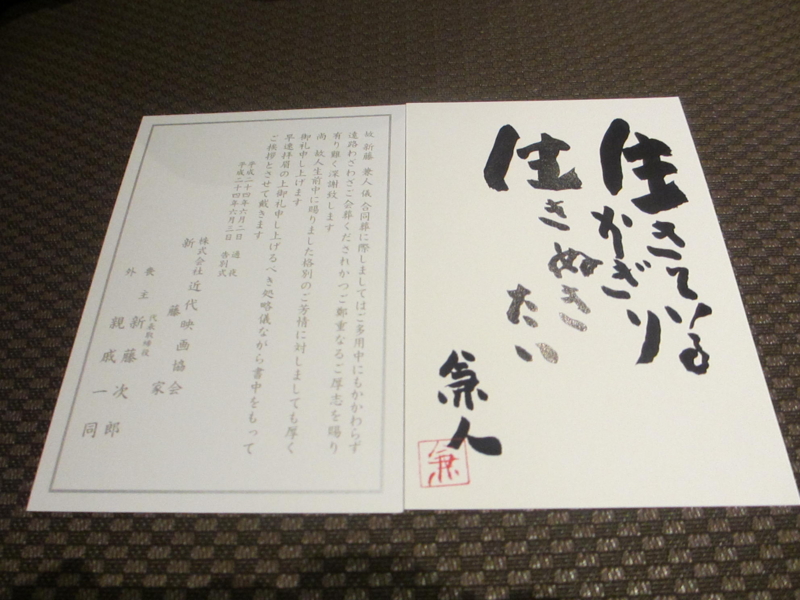 生きている
かぎり
生きぬき
たい
兼人
兼
故 新藤 兼人儀 合同葬に際しましてはご多用中にもかかわらず
遠路わざわざご会葬くだされかつご鄭重なるご厚志を賜り
有り難く深謝致します
尚 故人生前中に賜りました格別のご芳情に対しましても厚く
御礼申し上げます
早速拝眉の上御礼申し上げるべき処略儀ながら書中をもって
ご挨拶とさせて戴きます
平成二十四年六月二日 通夜
平成二十四年六月三日 告別式
株式会社 近代映画協会
新藤家
代表取締役
喪主 新藤次郎
外 親戚一同